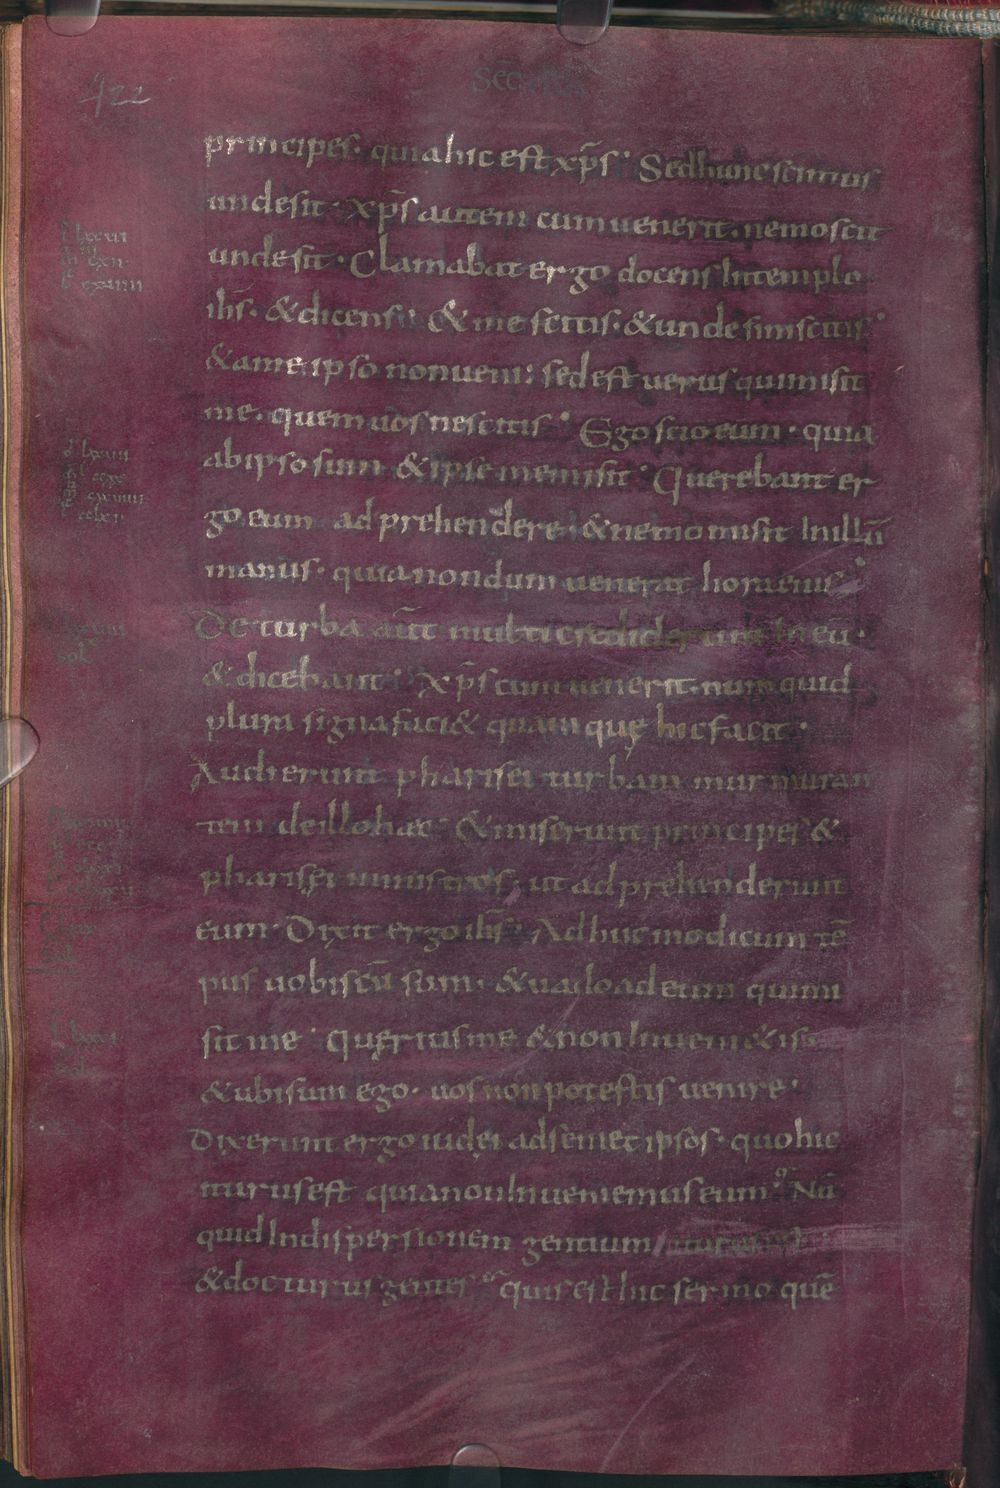 422
Sec̄
principes· quia hic est xp̄s· Sed hunc scimus
unde sit· xp̄s autem cum uenerit· nemo scit
unde sit· Clamabat ergo docens In templo
ih̄s· & dicens· & me scitis· & unde sim scitis·
& a me ipso non ueni; sed est uerus qui misit
me· quem uos nescitis· Ego scio eum· quia
ab ipso sum & ipse me misit· Querebant er
go eum adprehendere· & nemo misit In illū
manus· quia nondum uenerat hora eius·
De turba aūt multi crediderunt In eū·
& dicebant· xp̄s cum uenerit· numquid
plura signa faci& quam quę hic facit·
Audierunt pharisei turbam murmuran
tem de illo haec· & miserunt principes &
pharisęi ministros· ut adprehenderunt
eum· Dixit ergo ih̄s· Adhuc modicum tē
pus uobiscū sum· & uado ad eum qui mi
sit me· Quęritis me & non Inueni&is
& ubi sum ego· uos non potestis uenire·
Dixerunt ergo iudęi ad semet ipsos· quo hic
iturus est quia non Inueniemus eum· Nū
quid In dispersionem gentium iturus est
& docturus gentes· quis est hic sermo quē